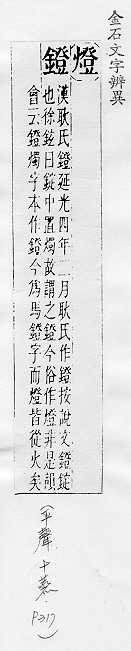 金石文字辨異
燈
鐙
漢耿氏鐙延光四年二月耿氏作鐙按說文鐙錠
也徐鉉曰錠中置燭故謂之鐙今俗作燈非是韻
會云鐙燭字本作鐙今為馬鐙字而燈皆從火矣
(平聲.十蒸.P217)